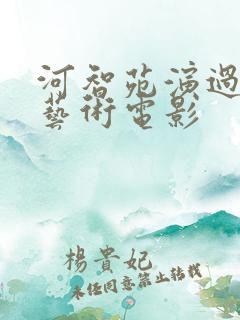 河智苑演過
藝術電影
楊貴妃
未経同意禁止転載